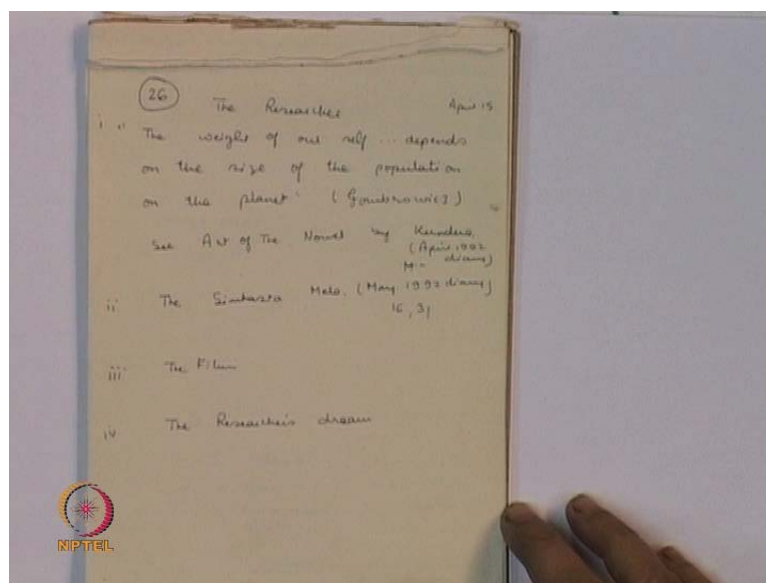 26 The Researcher April 15
i " The weight of our self ... depends
on the size of the population
on the planet" (Gombrowicz)
see Art of The Novel by Kundera
(April 1992
diary)
ii The Simhasta Mela. (May 1992 diary)
16, 31
iii The Film
iv The Researcher's dream
NPTEL